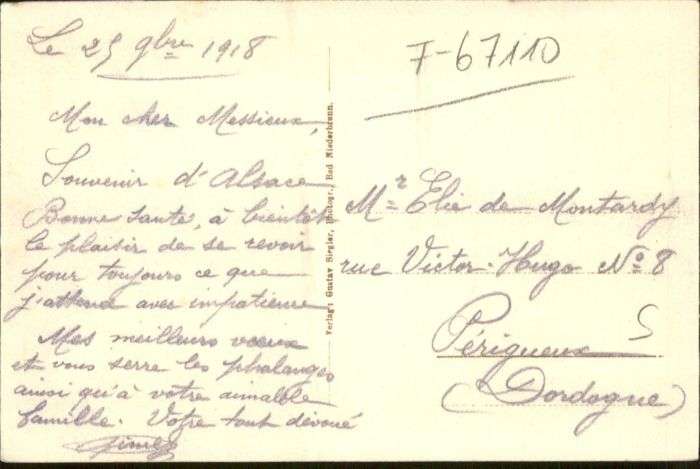 Le 25 9bre 1918
Mon cher Messieux,
Souvenir d'Alsace
Bonne santé, à bientôt
le plaisir de se revoir
pour toujours ce que
j'attend avec impatience
Mes meilleurs voeux
et vous serre les phalanges
ainsi qu'à votre aimable
famille. Votre tout dévoué
Verlag: Gustav Siegler, Photogr., Bad Niederbronn.
7-67110
Mr Elie de Montardy
rue Victor-Hugo No 8
Périgueux
(Dordogne)